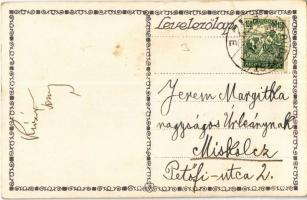 Levelezőlap
Jerem Margitka
nagyságos Úrleánynak
Miskolcz
Petőfi-utca 2.